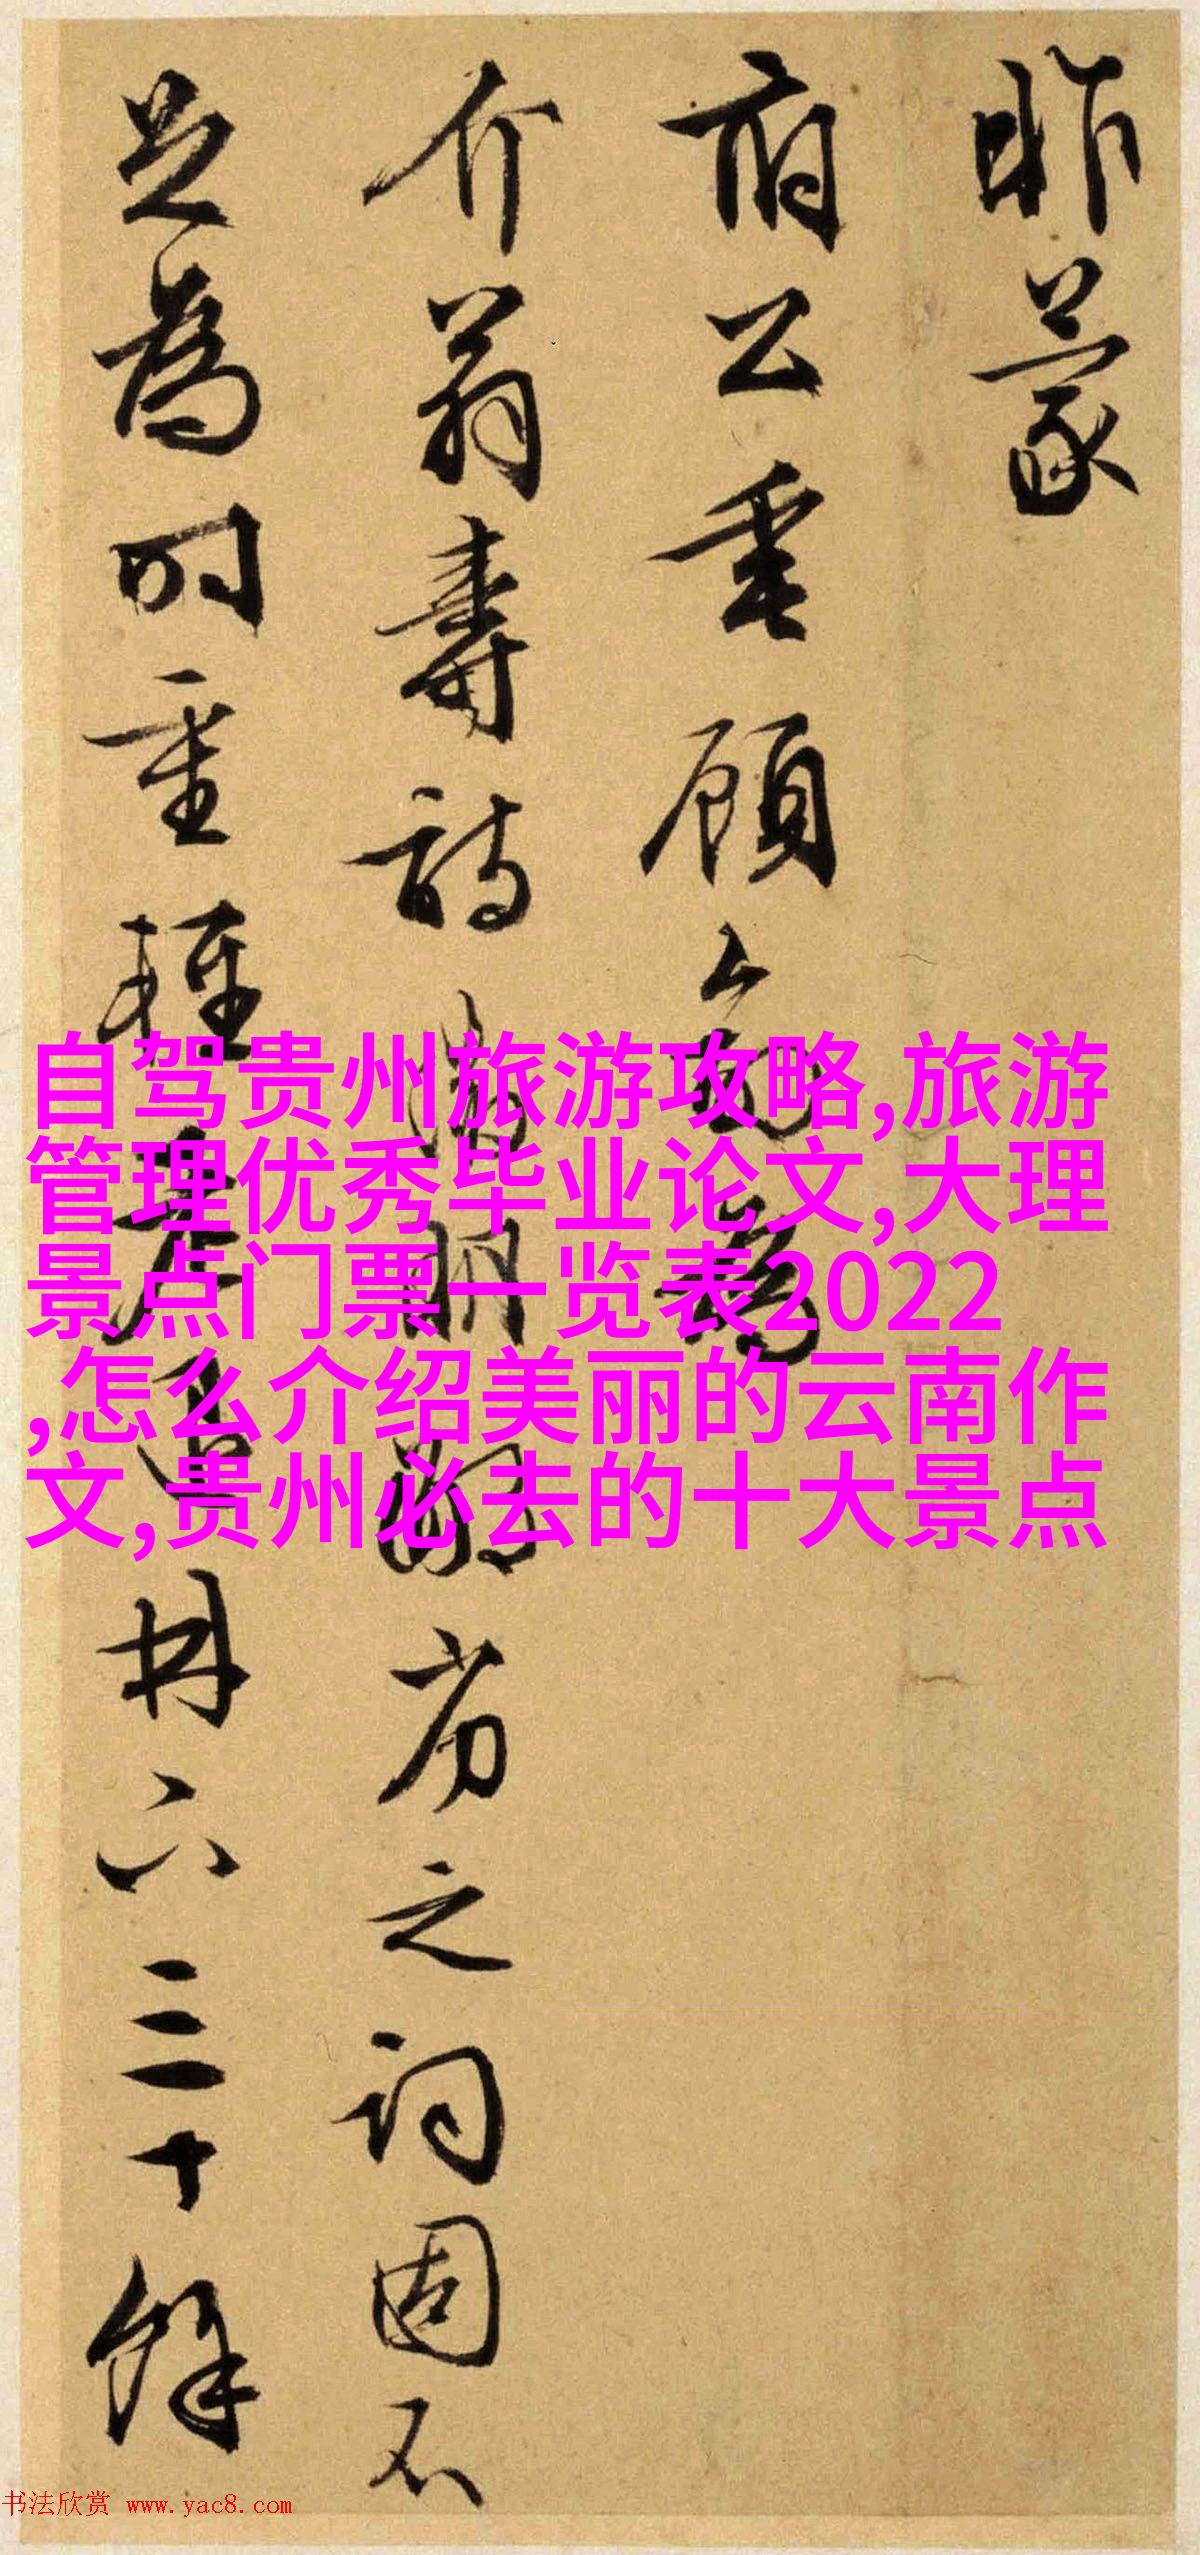 昨蒙
府公垂顧命為
介翁壽詩之詞固不
足為時重輕林下三十餘
自驾贵州旅游攻略,旅游
管理优秀毕业论文,大理
景点门票一览表2022
,怎么介绍美丽的云南作
文,贵州必去的十大景点
书法欣赏 www.yac8.com